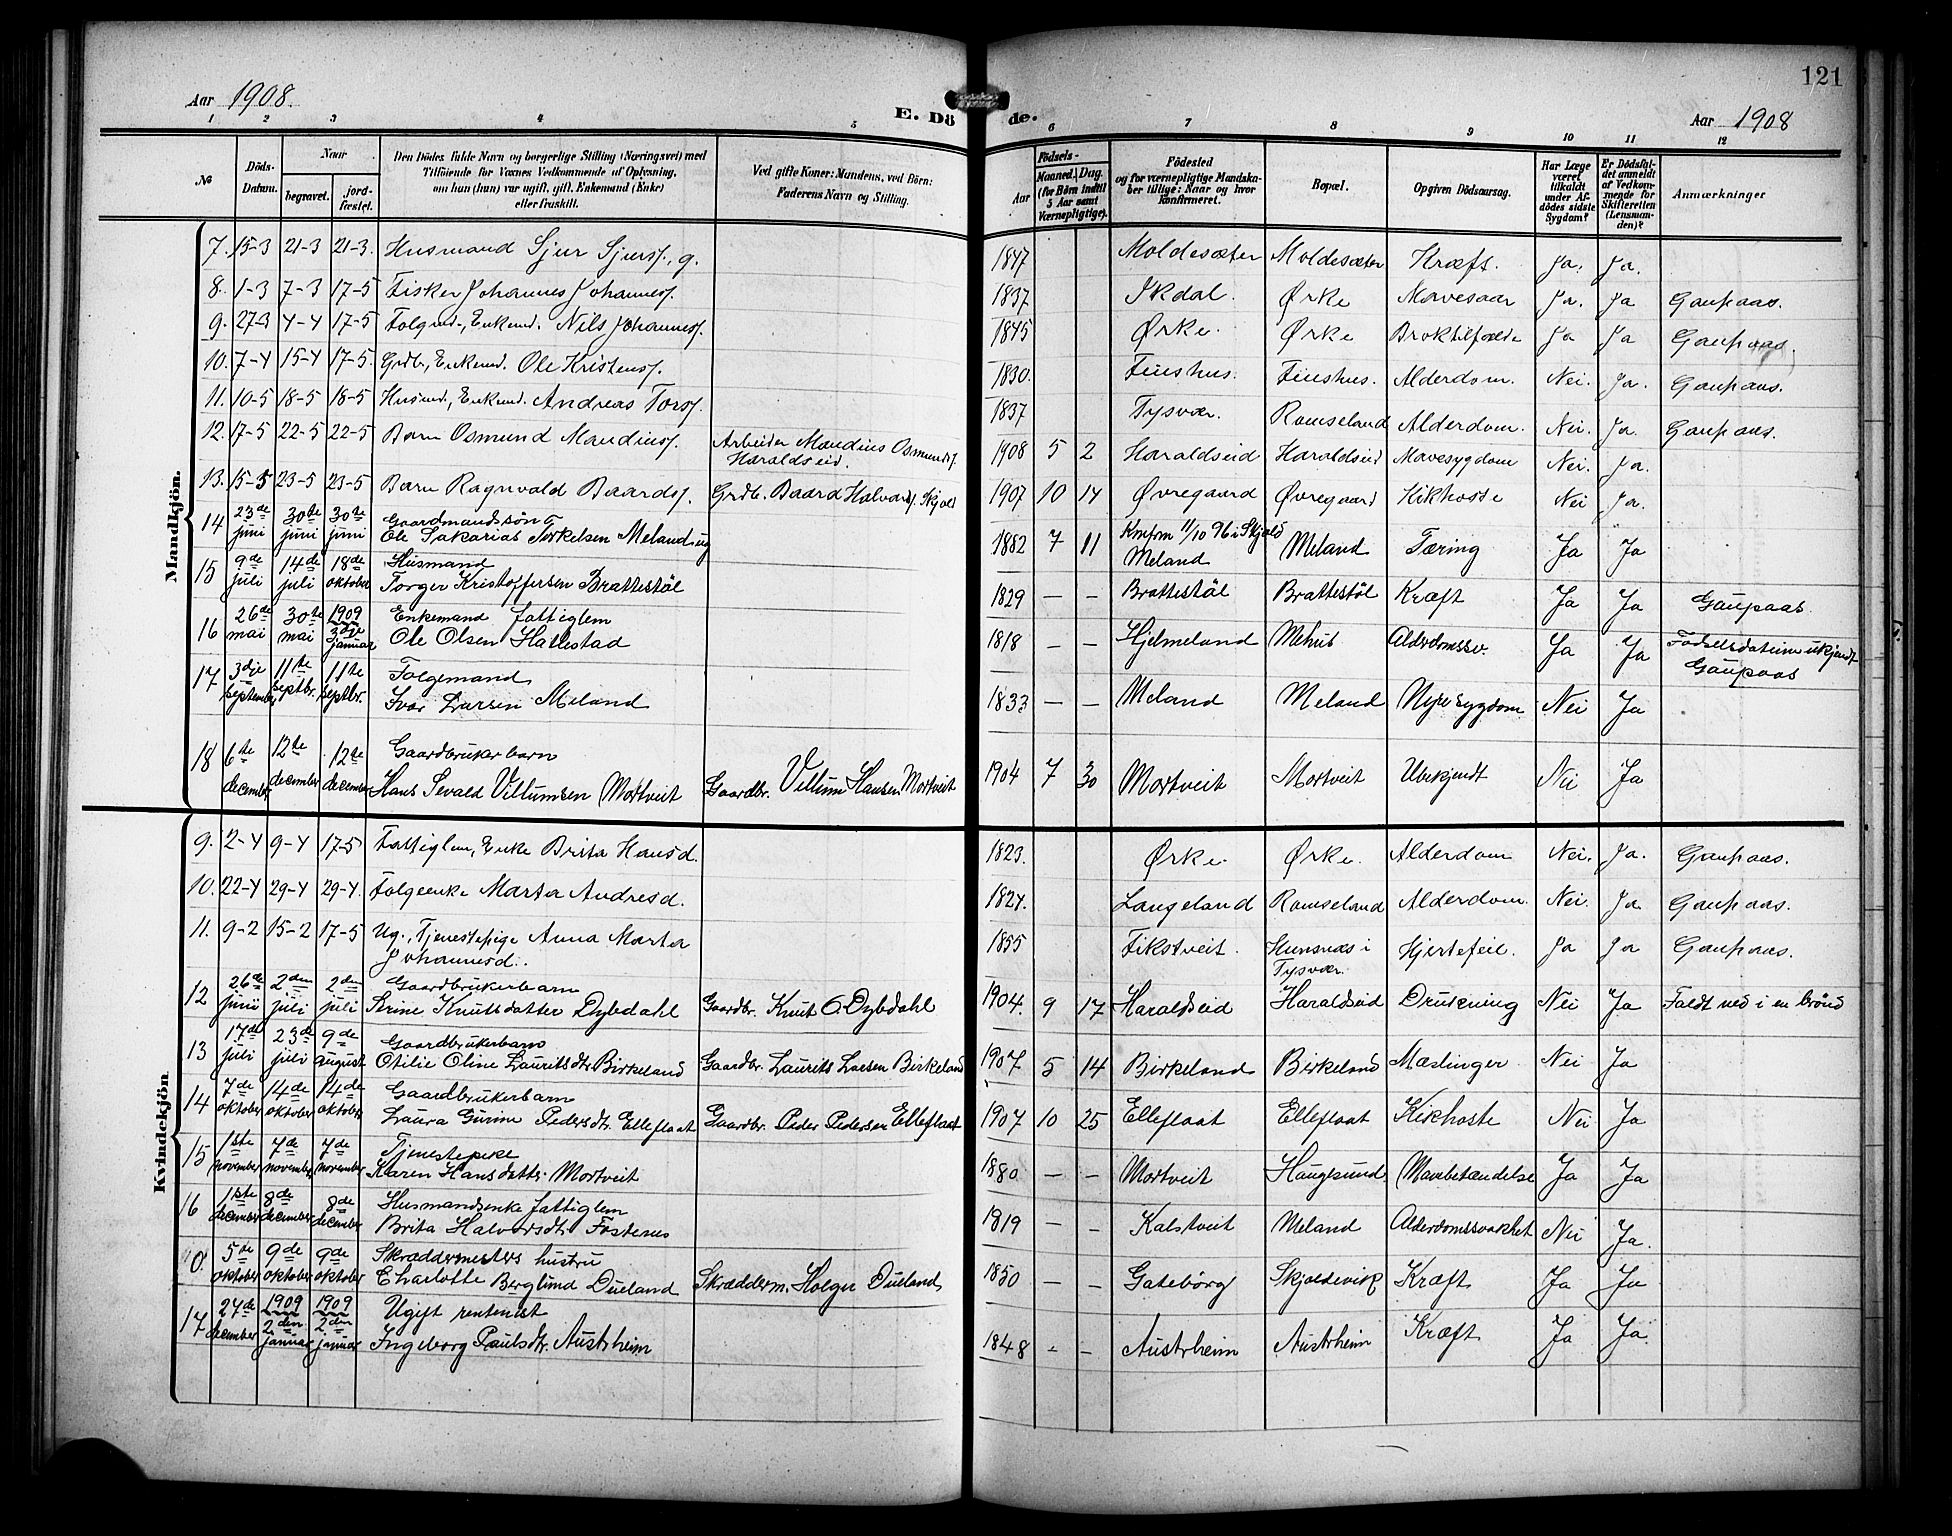 121
Aar 1908.
E. Döde.
Aar 1908
1 2 3 4 5 6 7 8 9 10 11 12
No
Döds-Datum.
Naar
begravet.
jord-fæstet.
Den Dödes fulde Navn og borgerlige Stilling (Næringsvei) med
Tilföiende for Voxnes Vedkommende af Oplysning,
om han (hun) var ugift, gift, Enkemand (Enke)
eller fraskilt.
Ved gifte Koner: Mandens, ved Börn:
Faderens Navn og Stilling.
Födsels-
Aar
Maaned. Dag.
(for Börn indtil
5 Aar samt
Værnepligtige).
Födested
og for værnepligtige Mandska-
ber tillige: Naar og hvor
konfirmeret.
Bopæl.
Opgiven Dödsaarsag.
Har Læge
været
tilkaldt
under Af-
dödes sidste
Sygdom?
Er Dödsfal-
det anmeldt
af Vedkom-
mende for
Skifteretten
(Lensman-
den)?
Anmærkninger
Mandkjön.
7. 15-3 21-3 21-3. Husmand Sjur Sjurss., g. 1847 Moldesæter Moldesæter Kræft. Ja. Ja.
8. 1-3 7-3 17-5 Fisker Johannes Johanness. 1837 Ikdal. Ørke Mavesaar Ja. Ja Gaupaas.
9. 27-3 4-4 17-5 Folgmd., Enkemd. Nils Johanness. 1845 Ørke. Ørke Broktilfælde Ja Ja Gaupaas.
10. 7-4 15-4 17-5. Grdb., Enkemd. Ole Kristenss. 1830. Fuushus. Fuushus. Alderdom. Nei. Ja. Gaupaas.
11. 10-5 18-5 18-5 Husmd., Enkemd. Andreas Torss. 1837 Tysvær. Ramseland Alderdom. Nei. Ja. Gaupaas.
12. 17-5 22-5 22-5 Barn Osmund Mandiuss. Arbeider Mandius Osmunds. Haraldseid. 1908 5 2 Haraldseid Haraldseid Mavesygdom Nei. Ja.
13. 15-5 23-5 23-5 Barn Ragnvald Baards. Grdb. Baard Halvors. Skjold 1907 10 14 Øvregaard Øvregaard Kikhoste Nei Ja.
14 23de juni 30te juni 30te juni Gaardmandssön Ole Sakarias Torkelsen Meland ug 1882 7 11 Knfrm 11/10 96 i Skjold Meland Meland Tæring Ja Ja
15 9de juli 14de juli 18de oktober Husmand Torger Kristoffersen Brattestöl 1829 — — Brattestöl Brattestöl Kræft Ja Ja Gaupaas
16 26de mai 30te mai 1909 3dje januar Enkemand fattiglem Ole Olsen Hallestad 1818 — — Hjelmeland Mehus Alderdomssv. Ja Ja Fødselsdatum ukjendt Gaupaas
17 3dje september 11te septbr. 11te septbr. Folgemand Ivar Larsen Meland 1833 — — Meland Meland Nyresygdom Nei Ja
18 6te december 12te december 12te december Gaardbrukerbarn Hans Sevald Villumsen Mortveit Gaardbr. Villum Hansen Mortveit 1904 7 30 Mortveit Mortveit Ubekjendt Nei Ja
Kvindekjön.
9. 2-4 9-4 17-5 Fattiglem, Enke Brita Hansd. 1823. Ørke. Ørke. Alderdom Nei. Ja. Gaupaas.
10. 22-4 29-4 29-4. Folgeenke Marta Andresd. 1824. Langeland Ramseland Alderdom. Nei. Ja. Gaupaas.
11. 9-2 15-2 17-5 Ug., Tjenestepige Anna Marta Johannesd. 1855 Fikstveit. Hunsnæs i Tysvær. Hjertefeil. Ja Ja Gaupaas.
12 26de juni 2den juli 2den juli Gaardbrukerbarn Serine Knutsdatter Dybdahl Gaardbr. Knut O. Dybdahl 1904. 9 17 Haraldseid Haraldseid Drukning Nei Ja Faldt ned i en brönd
13 17de juli 23de juli 9de august Gaardbrukerbarn Otilie Oline Lauritsdtr Birkeland Gaardbr. Laurits Larsen Birkeland 1907. 5 14 Birkeland Birkeland Mæslinger Nei Ja
14 7de oktober 14de oktober 14de oktober Gaardbrukerbarn Laura Gurine Pedersdtr. Elleflaat Gaardbr. Peder Pedersen Elleflaat 1907 10 25 Elleflaat Elleflaat Kikhoste Nei Ja
15 1ste november 7de november 7de november Tjenestepike Karen Hansdattr. Mortveit 1880 — — Mortveit Haugesund Mavebetændelse Ja Ja
16 1ste december 8de december 8de december Husmandsenke fattiglem Brita Halvorsdtr. Fosternes 1819 — — Kalstveit Meland Alderdomssvakhet Nei Ja.
5te oktober 9de oktober 9de oktober Skræddermesters hustru Charlotte Berglund Dueland Skrædderm. Holger Dueland 1850 — — Gøteborg Skjoldevik Kræft Ja Ja
17 24de december 1909 2den januar 1909 2den januar Ugift rentenist Ingeborg Paulsdtr. Austrheim 1848 — — Austrheim Austrheim Kræft Ja Ja.